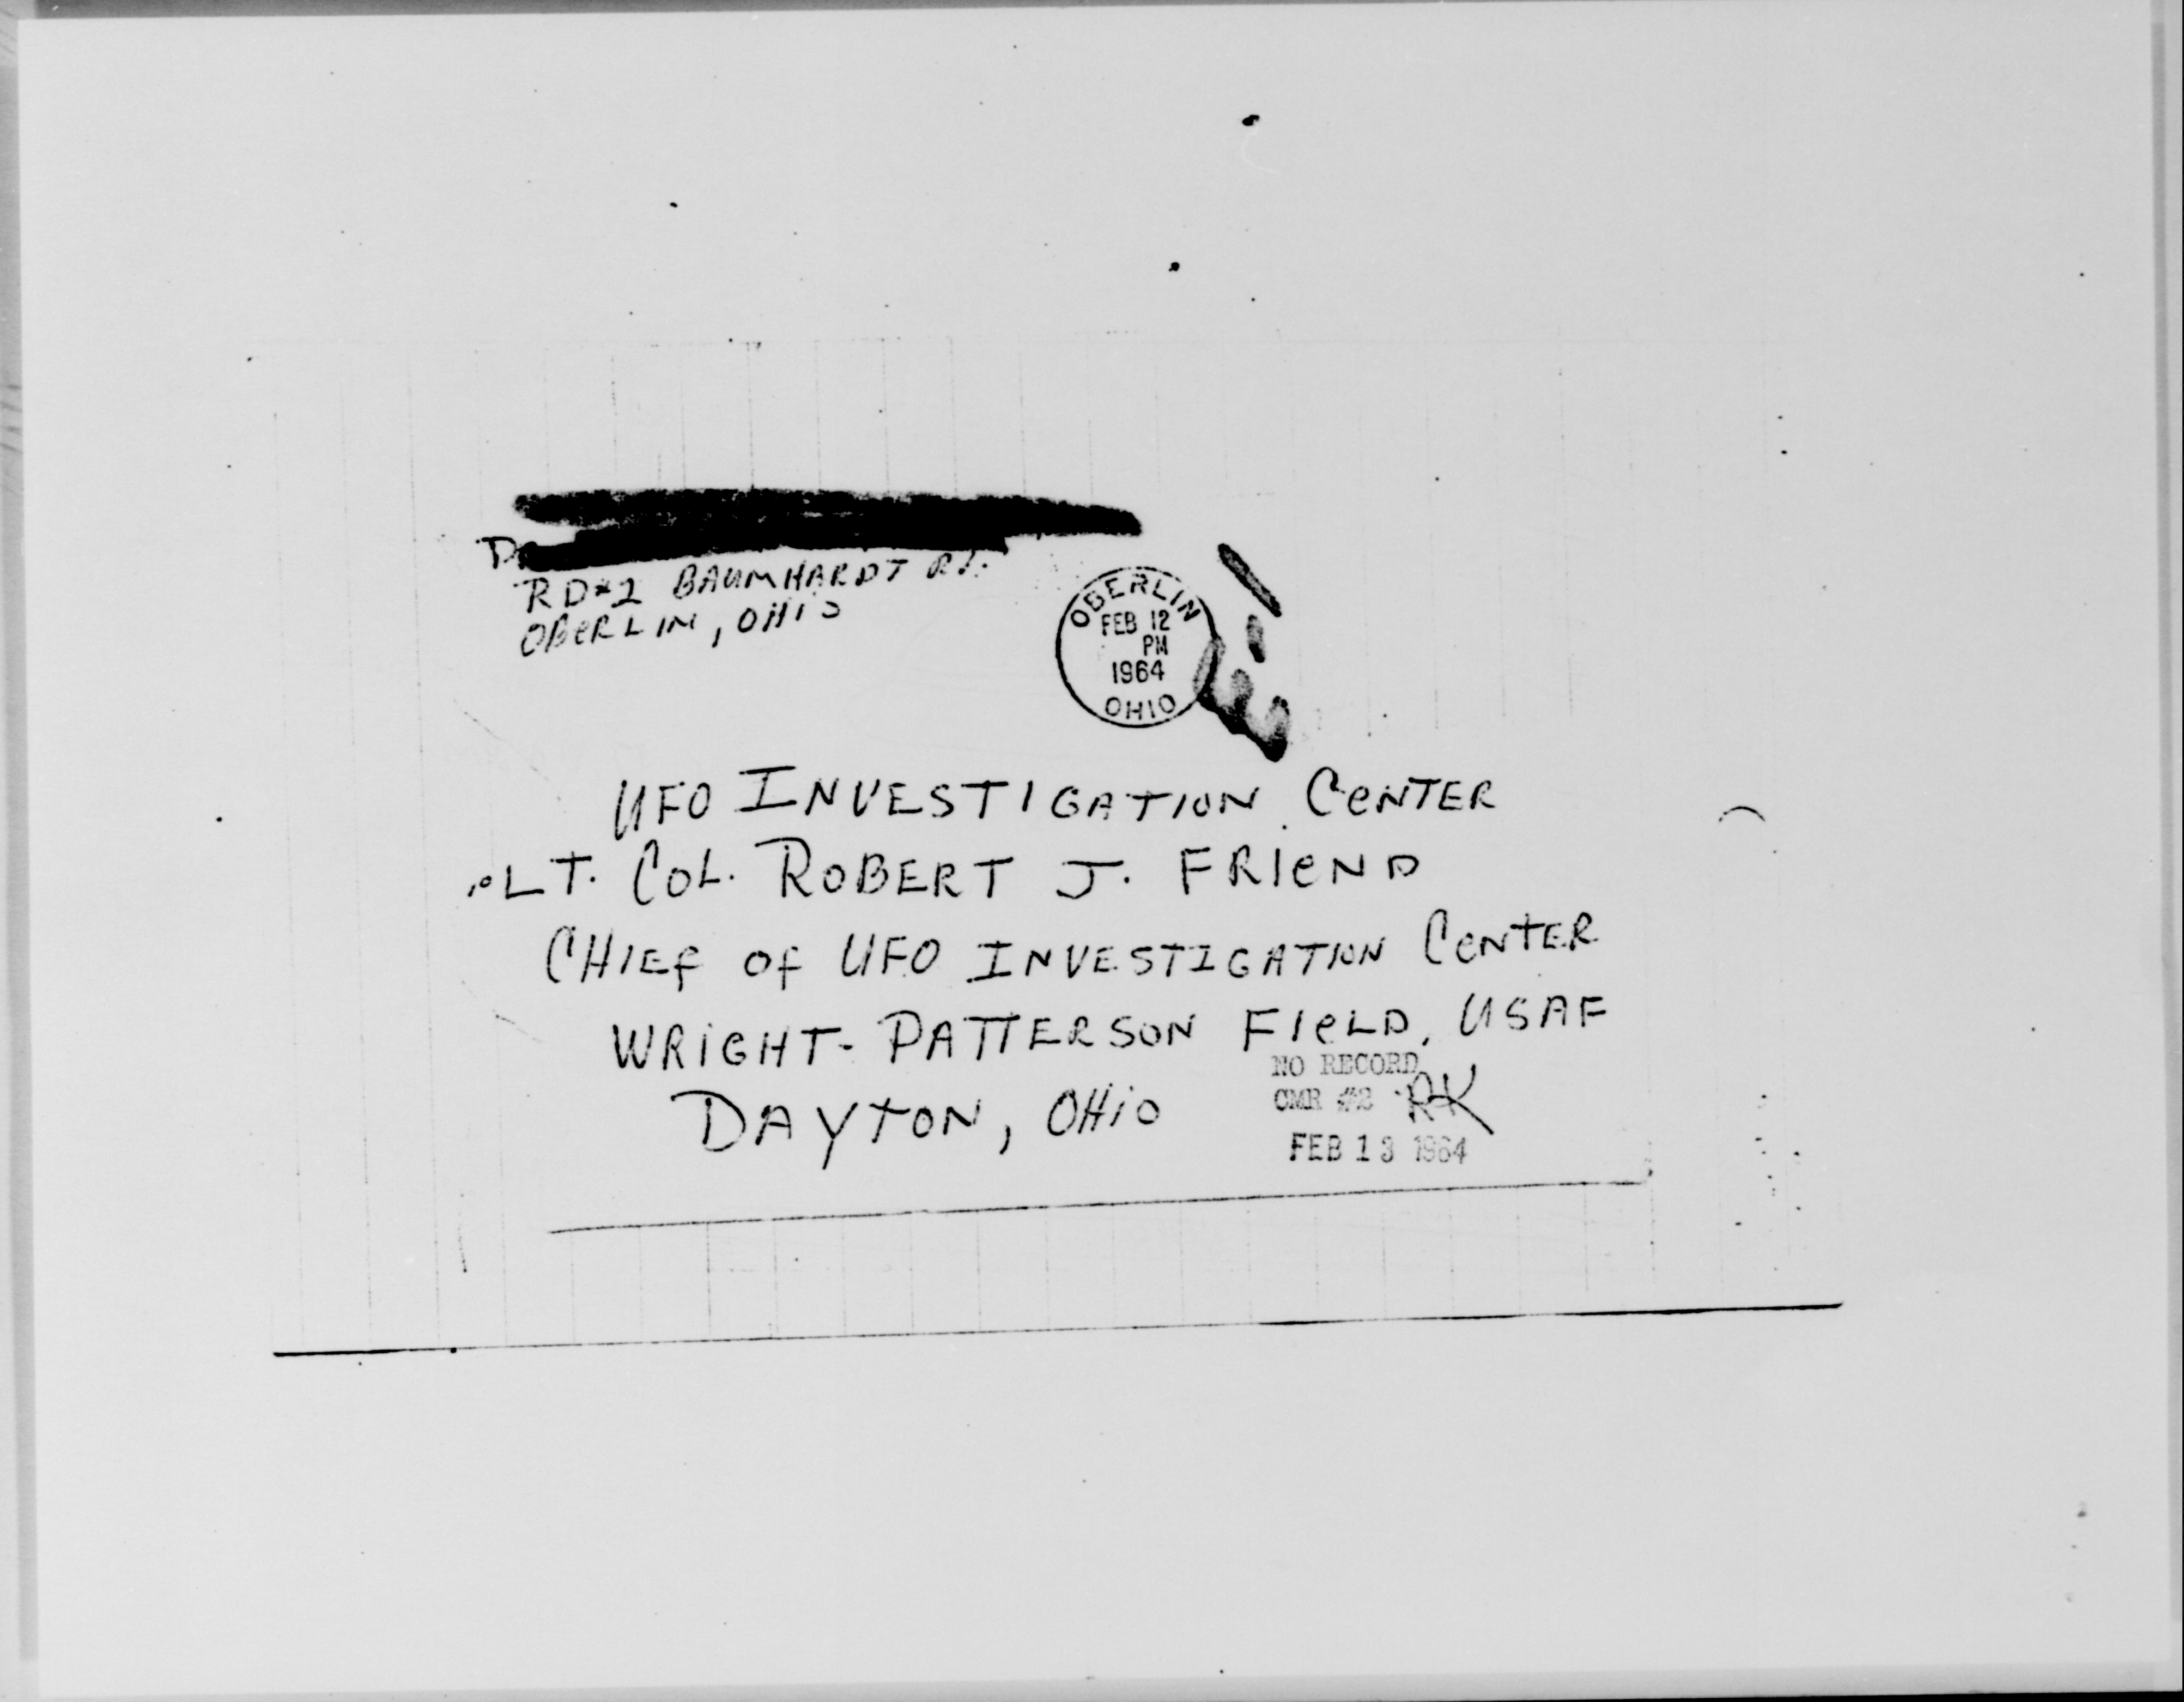 RD#2 BAUMHARDT RD.
OBERLIN, OHIO
OBERLIN
FEB 12
PM
1964
OHIO
UFO INVESTIGATION CENTER
LT. COL. ROBERT J. FRIEND
CHIEF OF UFO INVESTIGATION CENTER
WRIGHT-PATTERSON FIELD, USAF
DAYTON, OHIO
NO RECORD
CMR #2 RK
FEB 13 1964